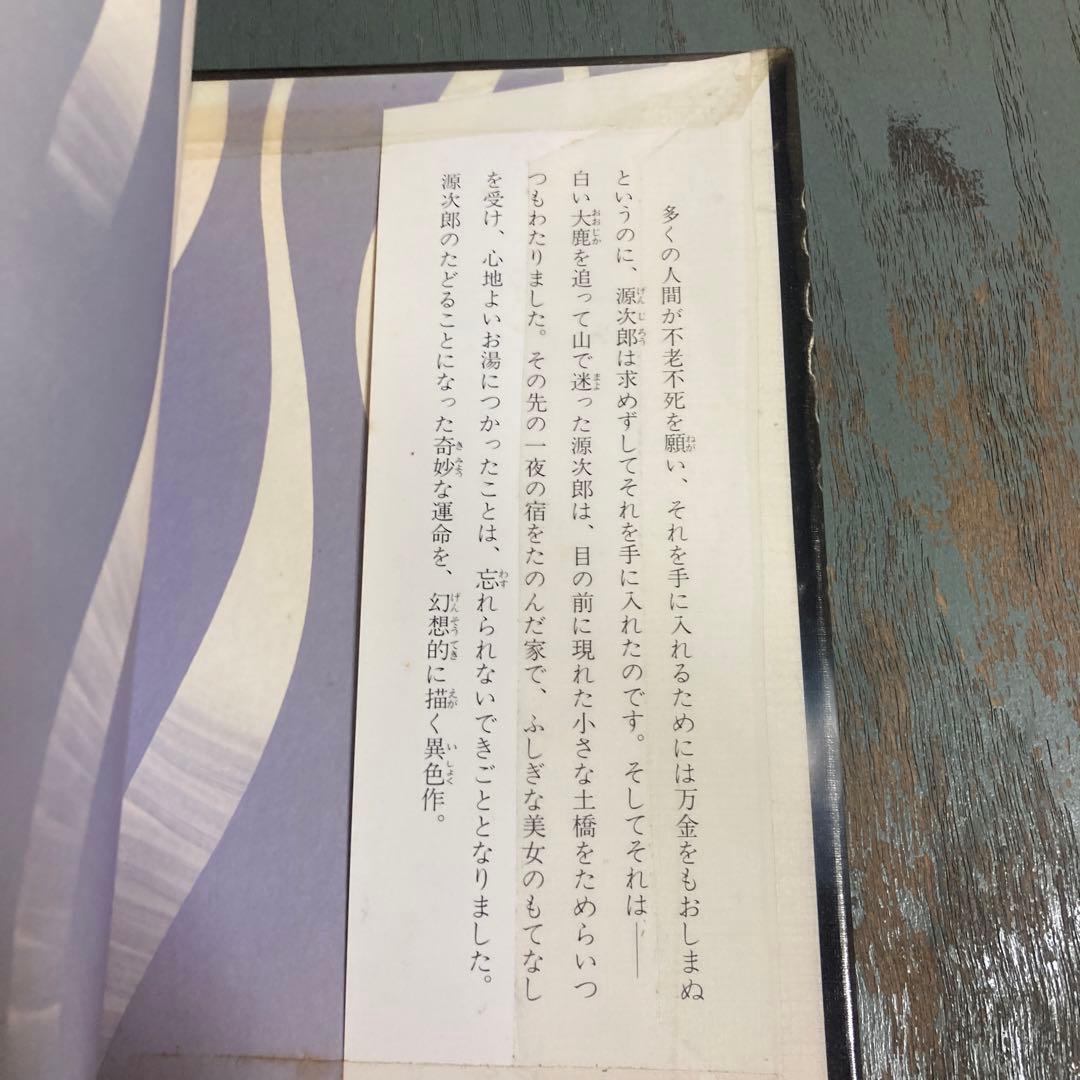 多くの人間が不老不死を願い、それを手に入れるためには万金をもおしまぬ
というのに、源次郎は求めずしてそれを手に入れたのです。そしてそれは――
白い大鹿を追って山で迷った源次郎は、目の前に現れた小さな土橋をためらいつ
つもわたりました。その先の一夜の宿をたのんだ家で、ふしぎな美女のもてなし
を受け、心地よいお湯につかったことは、忘れられないできごととなりました。
源次郎のたどることになった奇妙な運命を、幻想的に描く異色作。